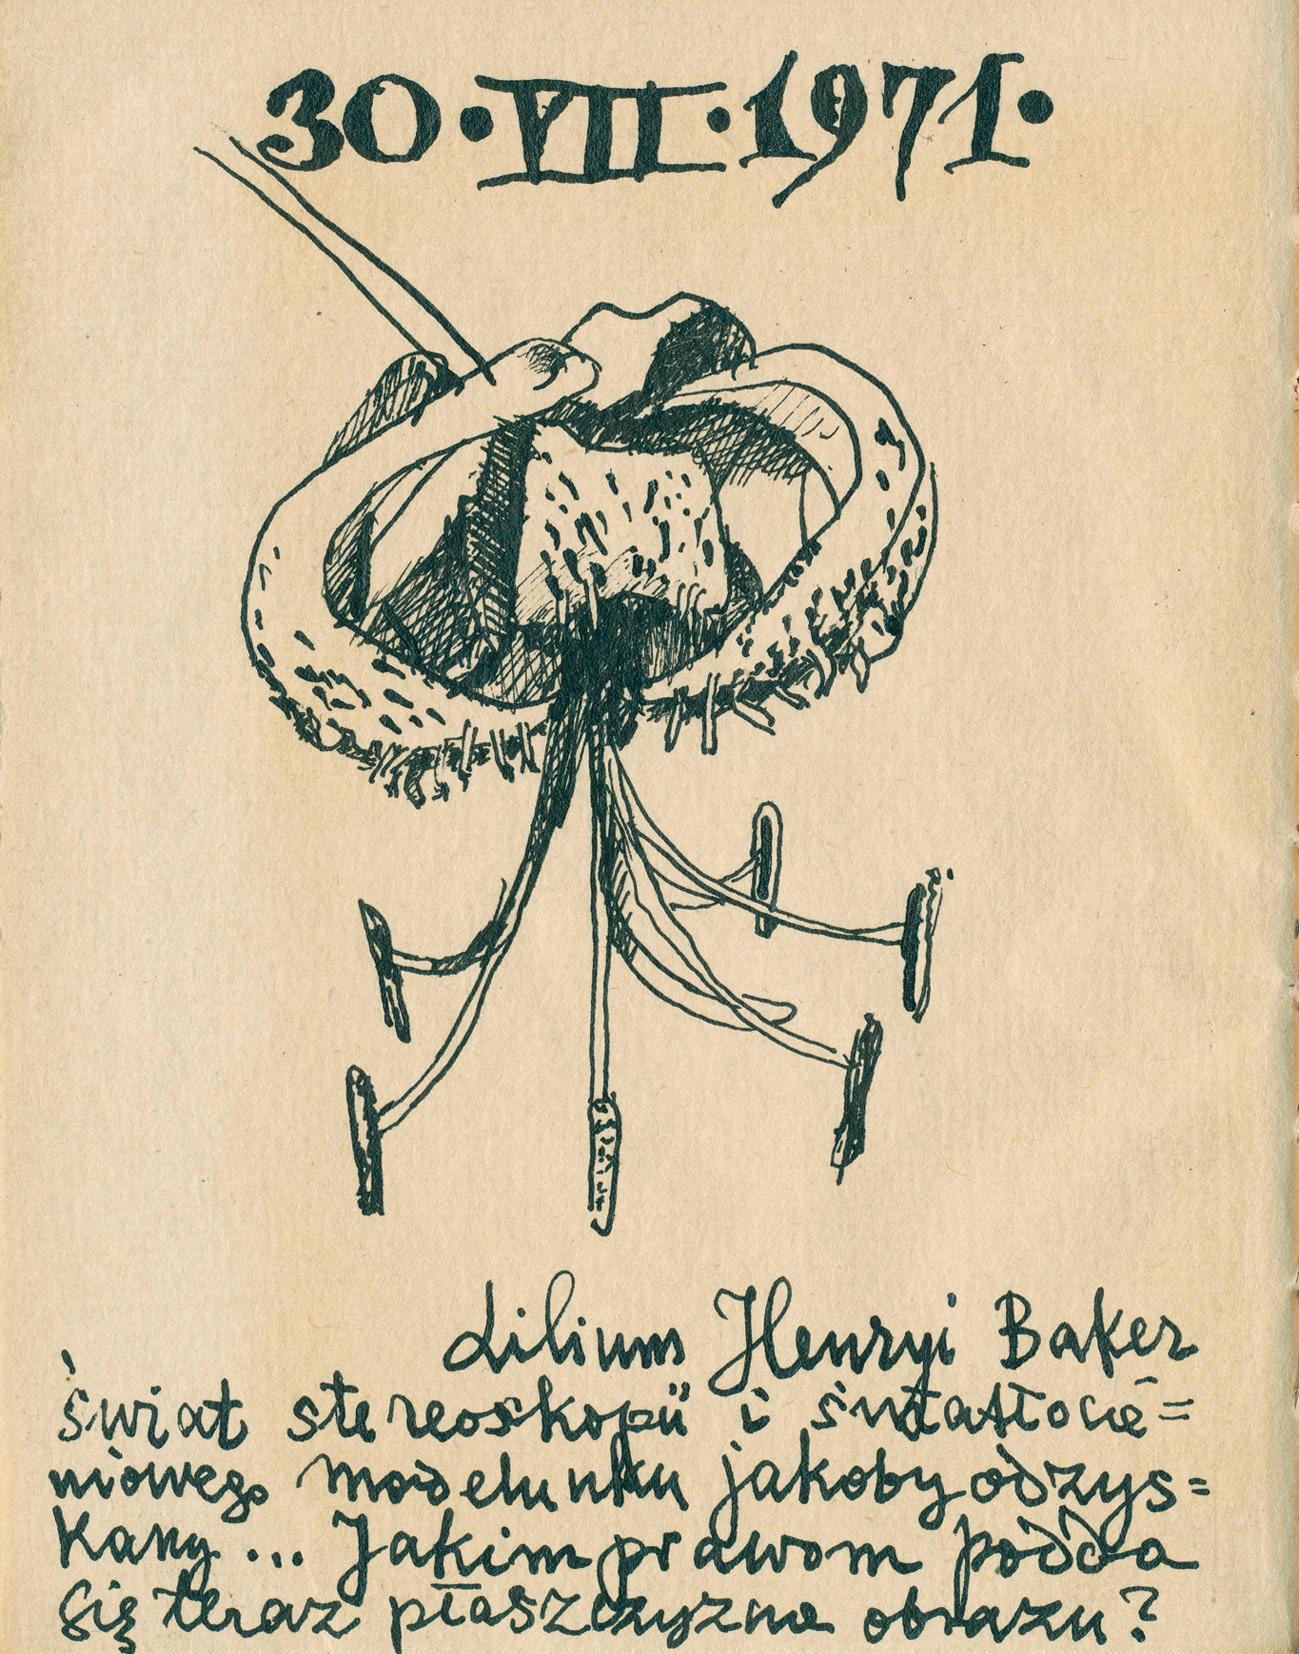 30·VII·1971·
Lilium Henryi Baker
świat stereoskopii i światłocie=
niowego modelunku jakoby odzys=
kany... Jakim prawom podda
się teraz płaszczyzna obrazu?